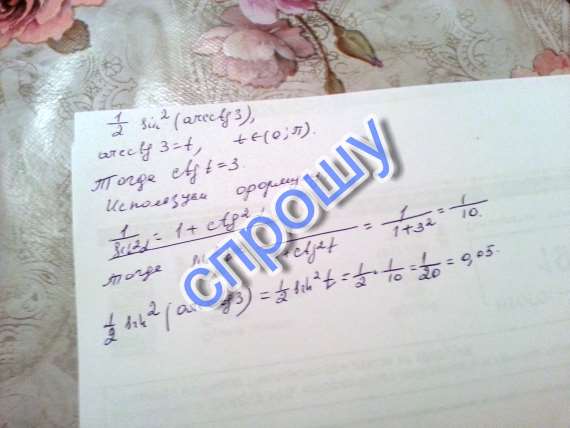 1/2 sin² (arcctg 3),
arcctg 3 = t, t ∈ (0; π).
Тогда ctg t = 3.
Используем
1/sin²α = 1 + ctg²
тогда ctg²t = 1/(1+3²) = 1/10.
1/2 sin² ( 3) = 1/2 sin² t = 1/2 · 1/10 = 1/20 = 0,05.
спрошу